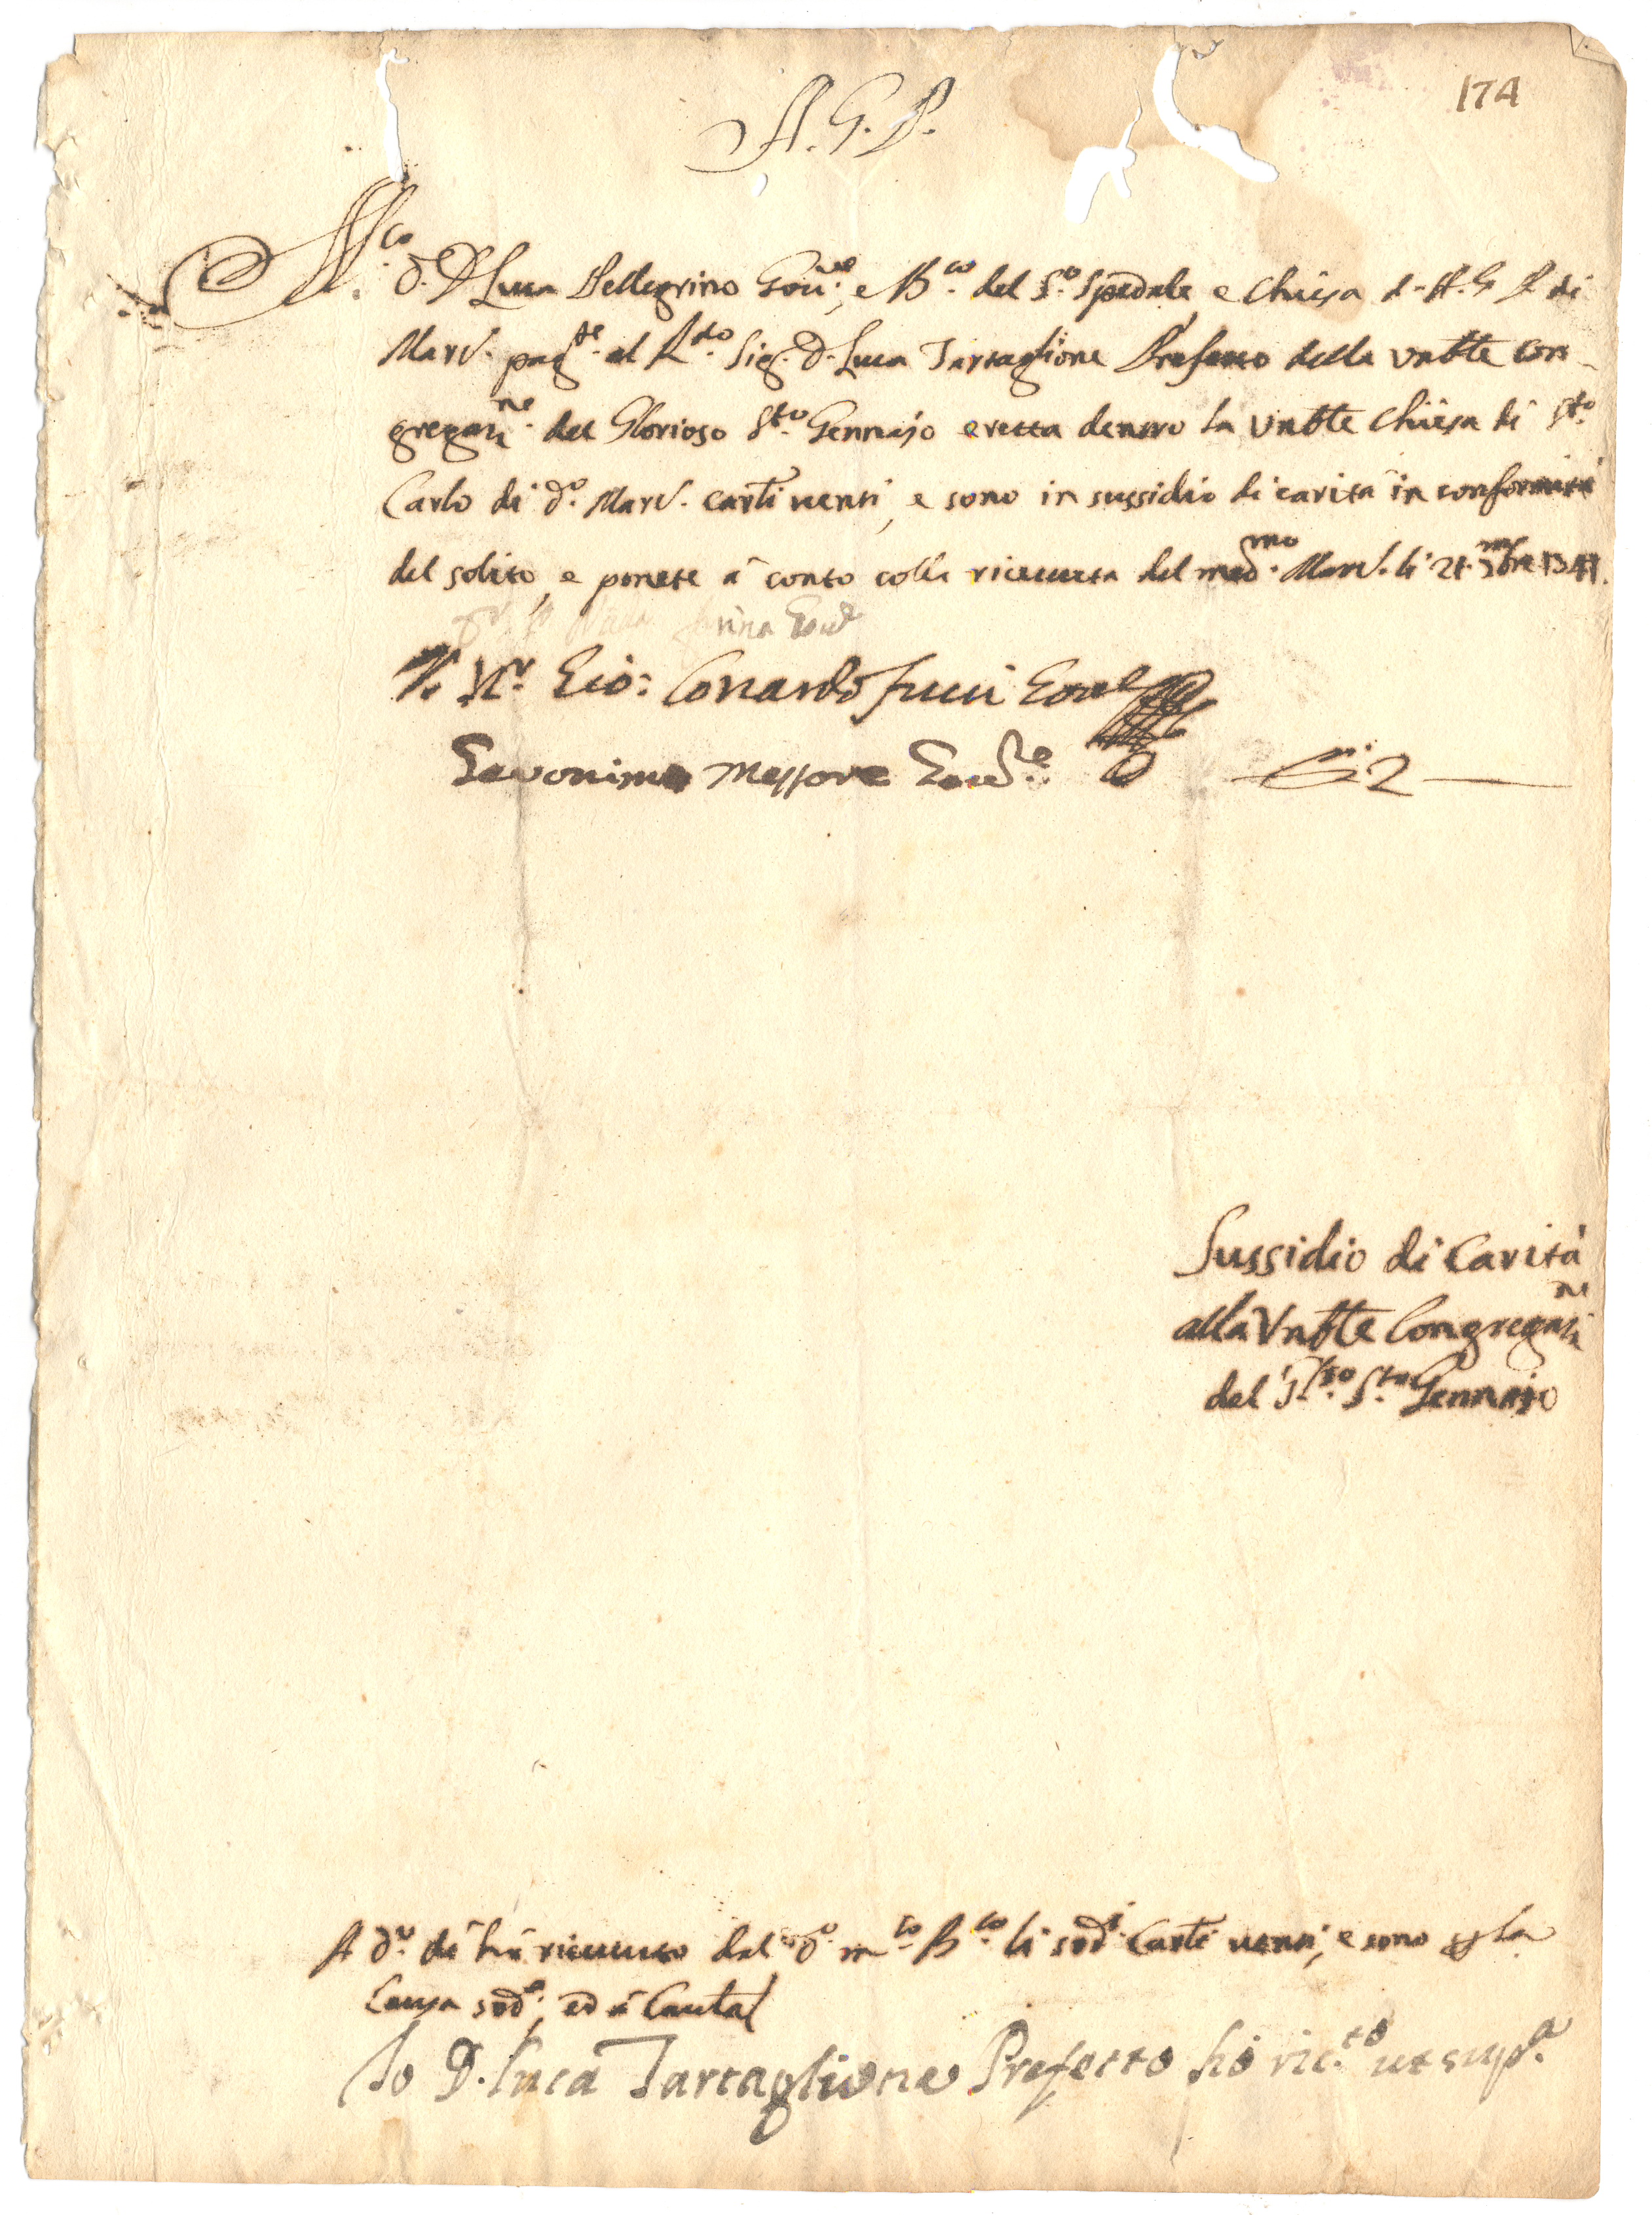 174
A. G. P.
M.co D. D. Luca Pellegrino Gov.re, e B.co del S.o Spedale, e Chiesa d. A. G. P. di
Marc. pag.te al R.do Sig. D. Luca Tartaglione Prefetto della Vnble Con-
gregaz.ne del Glorioso S.to Gennajo eretta dentro la Vnble Chiesa di S.to
Carlo di d.o Marc. Carlì venti, e sono in sussidio di carità in conformità
del solito, e ponete à conto colla ricevuta del med.mo Marc. li 21
Gio: Fucci
Geronimo Messore 2
Sussidio di Carità
alla Vnble Congregaz.ne
del G.so S.to Gennajo
A d.o dì hà ricevuto dal d.o m.co B.co li sod.i Carlì venti, e sono per la
Causa sod.a, ed à Cautal
Io D. Luca Tartaglione Prefetto hò ric.to ut sup.a